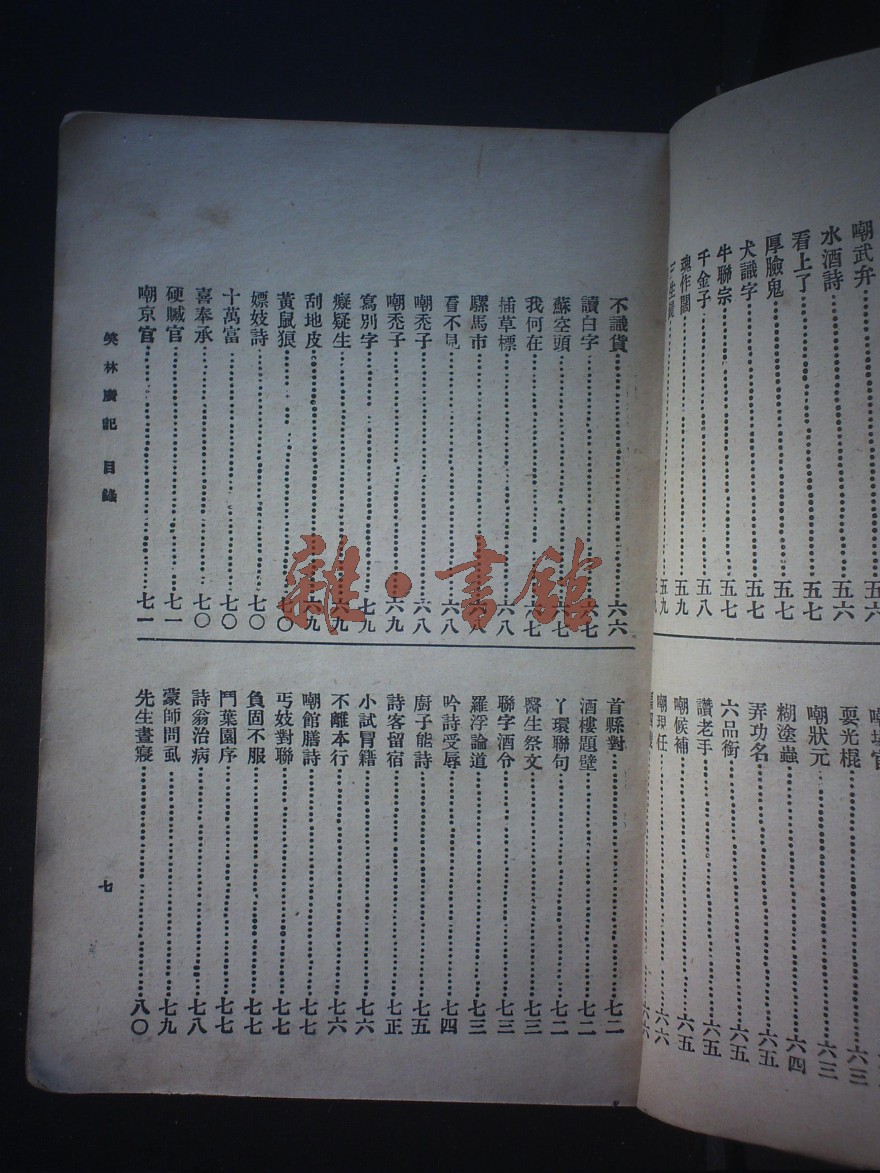 嘲武弁
水酒詩⋯⋯五六
看上了⋯⋯五七
厚臉鬼⋯⋯五七
犬識字⋯⋯五七
牛聯宗⋯⋯五七
千金子⋯⋯五八
魂作鬧⋯⋯五九
耍光棍⋯⋯六三
嘲狀元⋯⋯六三
糊塗蟲⋯⋯六四
弄功名⋯⋯六五
六品銜⋯⋯六五
讚老手⋯⋯六五
嘲候補⋯⋯六五
嘲現任⋯⋯六六
不識貨⋯⋯六六
讀白字⋯⋯六七
蘇空頭⋯⋯六七
我何在⋯⋯六七
插草標⋯⋯六八
騾馬市⋯⋯六八
看不見⋯⋯六八
嘲禿子⋯⋯六八
嘲禿子⋯⋯六九
寫別字⋯⋯七九
癡疑生⋯⋯六九
刮地皮⋯⋯六九
黃鼠狼⋯⋯七〇
嫖妓詩⋯⋯七〇
十萬富⋯⋯七〇
喜奉承⋯⋯七〇
硬贓官⋯⋯七一
嘲京官⋯⋯七一
首縣對⋯⋯七二
酒樓題壁⋯⋯七二
丫環聯句⋯⋯七二
醫生祭文⋯⋯七三
聯字酒令⋯⋯七三
羅浮論道⋯⋯七三
吟詩受辱⋯⋯七四
廚子能詩⋯⋯七五
詩客留宿⋯⋯七正
小試冒籍⋯⋯七六
不離本行⋯⋯七六
嘲館膳詩⋯⋯七七
丐妓對聯⋯⋯七七
負固不服⋯⋯七七
鬥葉園序⋯⋯七七
詩翁治病⋯⋯七八
蒙師問虱⋯⋯七九
先生晝寢⋯⋯八〇
笑林廣記 目錄
七
雜·書館